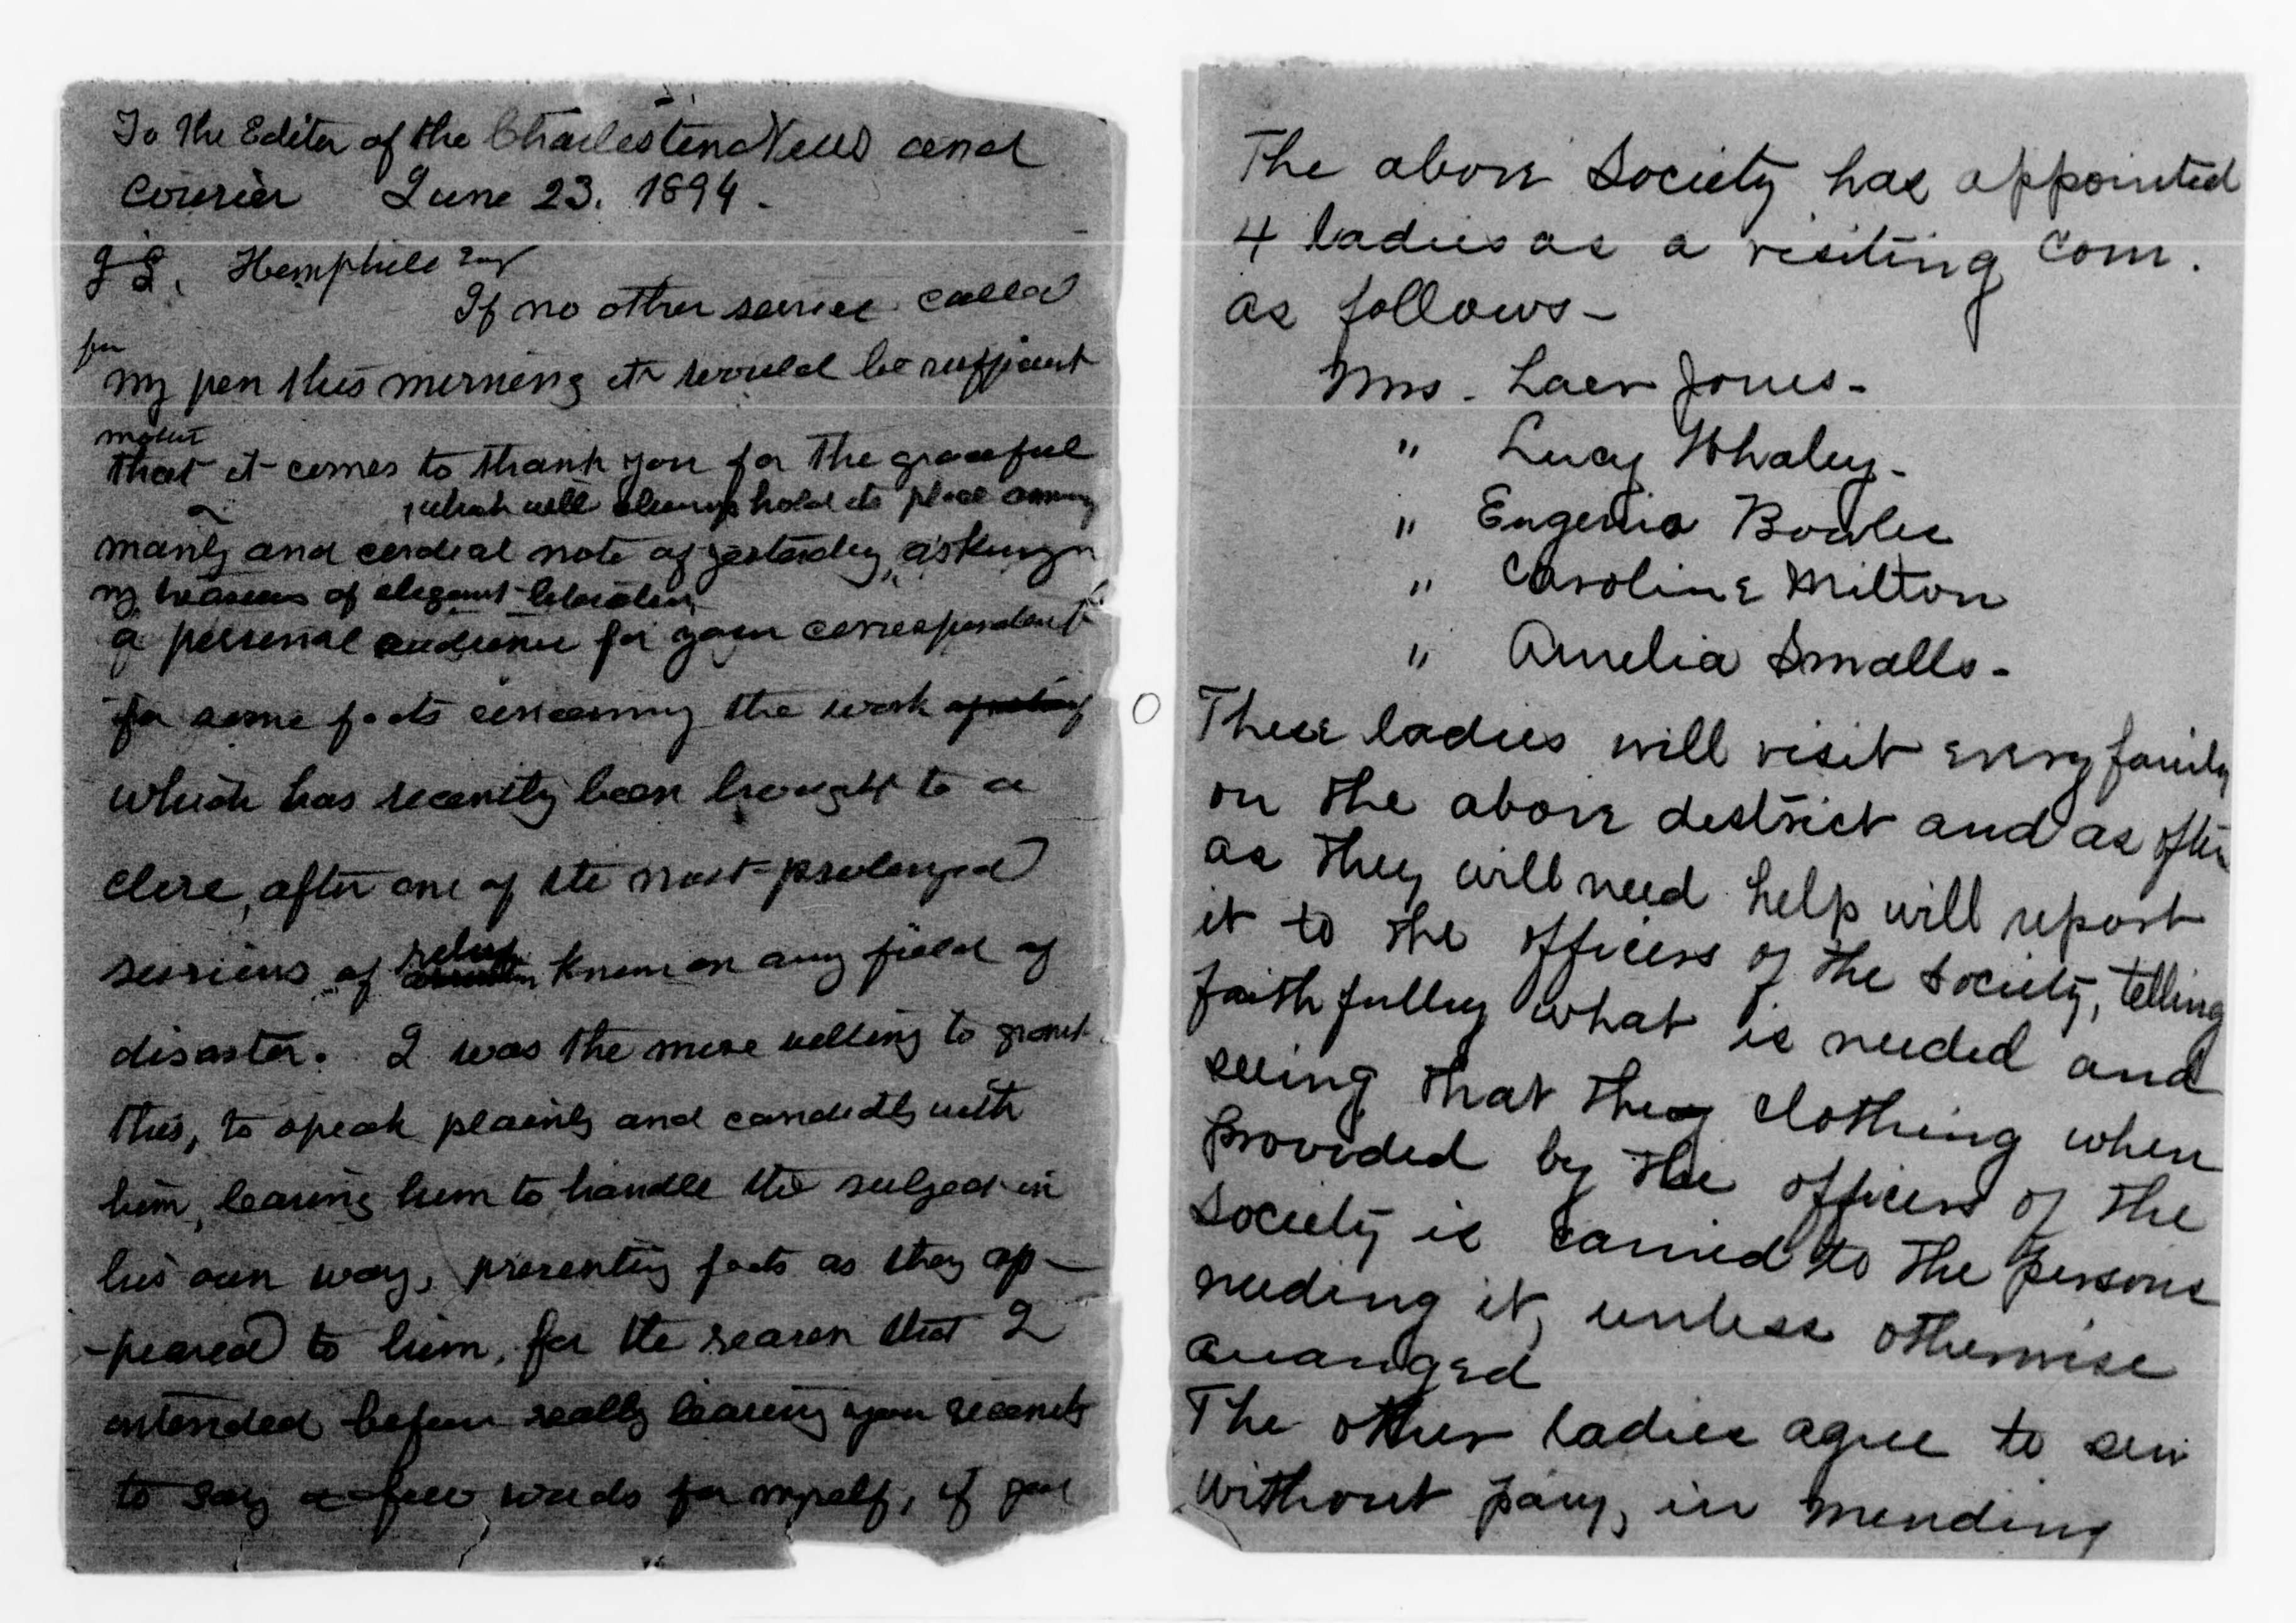 To the Editor of the Charleston News and
Courier June 23. 1894.
J. Hemphill Esq
If no other service called
for
my pen this morning it would be sufficient
that it comes to thank you for the graceful
which will always hold its place among
manly and cordial note of yesterday, asking
my treasures of elegant
a personal audience for your correspondent
for some facts concerning the work
which has recently been brought to a
close, after one of the most prolonged
services of relief known on any field of
disaster. I was the more willing to grant
this, to speak plainly and candidly with
him, leaving him to handle the subject in
his own way, presenting facts as they ap-
-peared to him, for the reason that I
intended before really leaving your
to say a few words for myself, if you
The above Society has appointed
4 ladies as a visiting Com.
as follows-
Mrs. Jones-
" Lucy Whaley-
" Eugenia Bowles
" Caroline Milton
" Amelia Smalls-
These ladies will visit every family
on the above district and as often
as they will need help will report
it to the officers of the Society, telling
faithfully what is needed and
seeing that they clothing when
provided by the officers of the
Society is carried to the persons
needing it, unless otherwise
arranged
The other ladies agree to sew
without pay, in mending